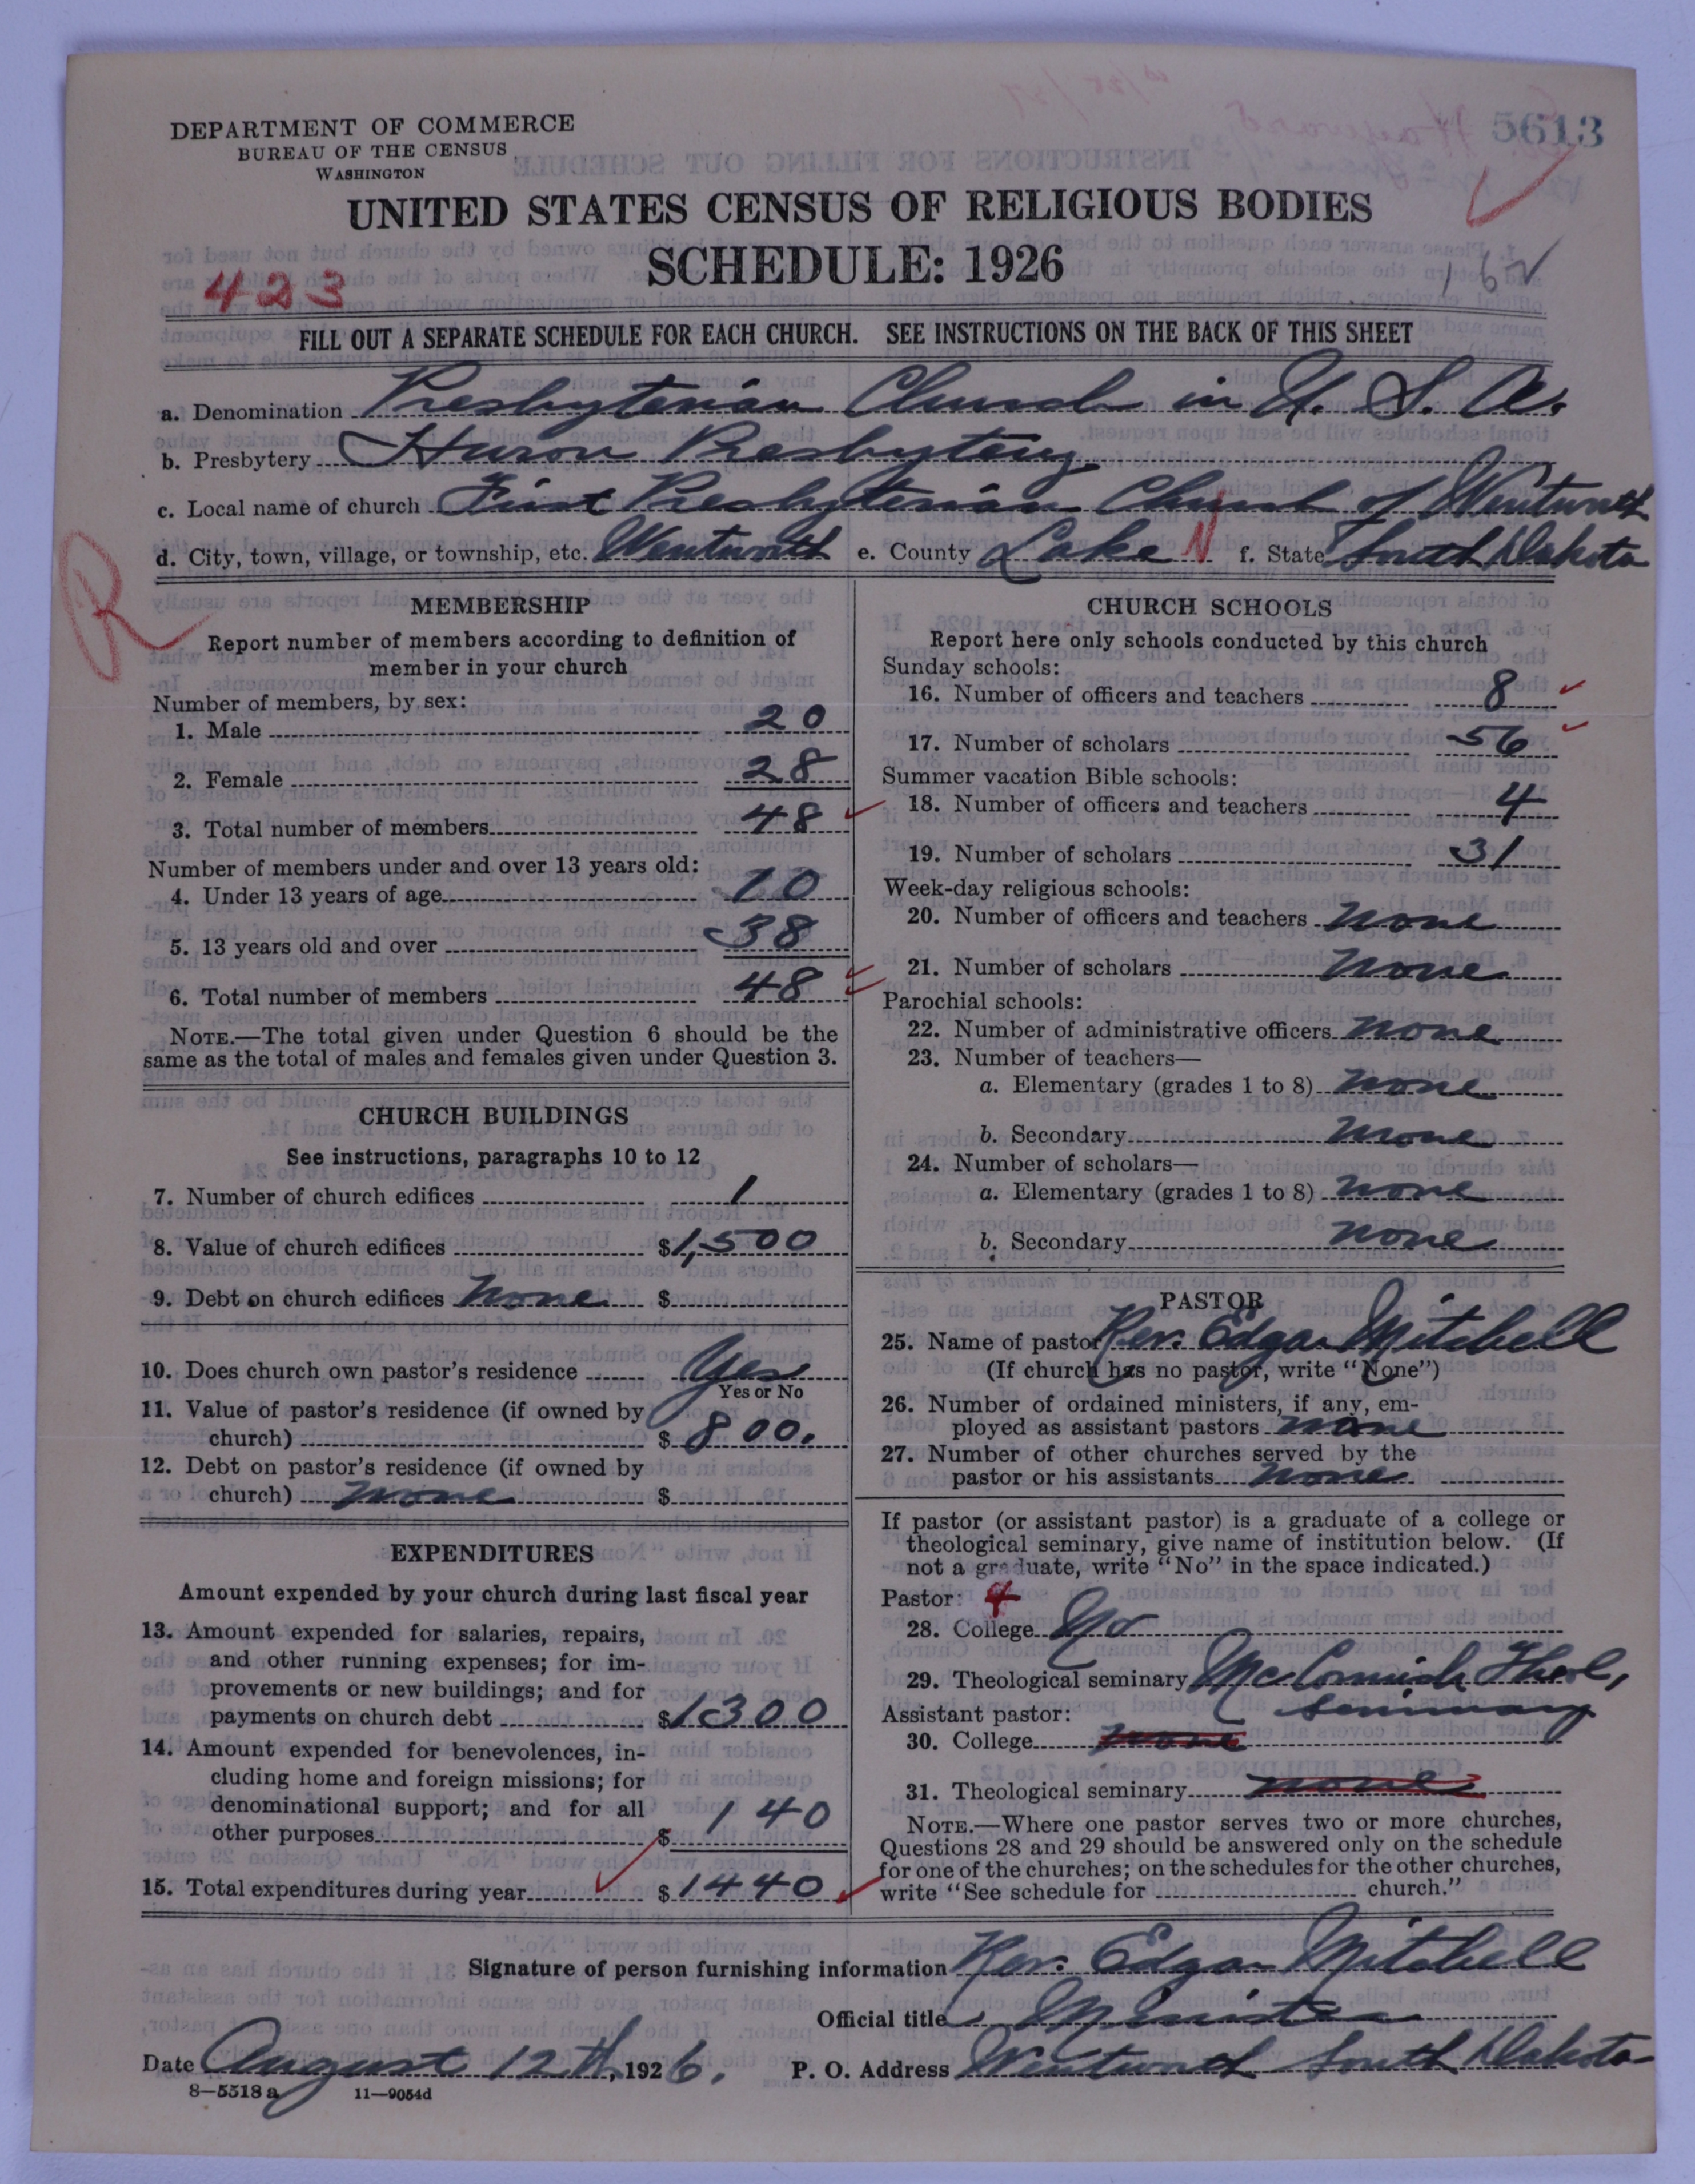 DEPARTMENT OF COMMERCE
BUREAU OF THE CENSUS
WASHINGTON
5613
UNITED STATES CENSUS OF RELIGIOUS BODIES
SCHEDULE: 1926
423
162
FILL OUT A SEPARATE SCHEDULE FOR EACH CHURCH. SEE INSTRUCTIONS ON THE BACK OF THIS SHEET
a. Denomination Presbyterian Church in U. S. A.
b. Presbytery Huron Presbytery
c. Local name of church First Presbyterian Church of Wentworth
d. City, town, village, or township, etc. Wentworth e. County Lake N f. State South Dakota
R
MEMBERSHIP
Report number of members according to definition of
member in your church
Number of members, by sex:
1. Male 20
2. Female 28
3. Total number of members 48
Number of members under and over 13 years old:
4. Under 13 years of age 10
5. 13 years old and over 38
6. Total number of members 48
NOTE.—The total given under Question 6 should be the
same as the total of males and females given under Question 3.
CHURCH BUILDINGS
See instructions, paragraphs 10 to 12
7. Number of church edifices 1
8. Value of church edifices $1,500
9. Debt on church edifices None $
10. Does church own pastor's residence Yes
Yes or No
11. Value of pastor's residence (if owned by
church) $ 800.
12. Debt on pastor's residence (if owned by
church) none $
EXPENDITURES
Amount expended by your church during last fiscal year
13. Amount expended for salaries, repairs,
and other running expenses; for im-
provements or new buildings; and for
payments on church debt $1300
14. Amount expended for benevolences, in-
cluding home and foreign missions; for
denominational support; and for all
other purposes $ 140
15. Total expenditures during year $1440
CHURCH SCHOOLS
Report here only schools conducted by this church
Sunday schools:
16. Number of officers and teachers 8
17. Number of scholars 56
Summer vacation Bible schools:
18. Number of officers and teachers 4
19. Number of scholars 31
Week-day religious schools:
20. Number of officers and teachers none
21. Number of scholars none
Parochial schools:
22. Number of administrative officers none
23. Number of teachers—
a. Elementary (grades 1 to 8) none
b. Secondary none
24. Number of scholars—
a. Elementary (grades 1 to 8) none
b. Secondary none
PASTOR
25. Name of pastor Rev. Edgar Mitchell
(If church has no pastor, write "None")
26. Number of ordained ministers, if any, em-
ployed as assistant pastors none
27. Number of other churches served by the
pastor or his assistants none
If pastor (or assistant pastor) is a graduate of a college or
theological seminary, give name of institution below. (If
not a graduate, write "No" in the space indicated.)
Pastor: 4
28. College No
29. Theological seminary McCormick Theol,
Seminary
Assistant pastor:
30. College none
31. Theological seminary none
NOTE.—Where one pastor serves two or more churches,
Questions 28 and 29 should be answered only on the schedule
for one of the churches; on the schedules for the other churches,
write "See schedule for church."
Signature of person furnishing information Rev. Edgar Mitchell
Official title Minister
Date August 12th, 1926. P. O. Address Wentworth South Dakota
8—5518 a 11—9054d